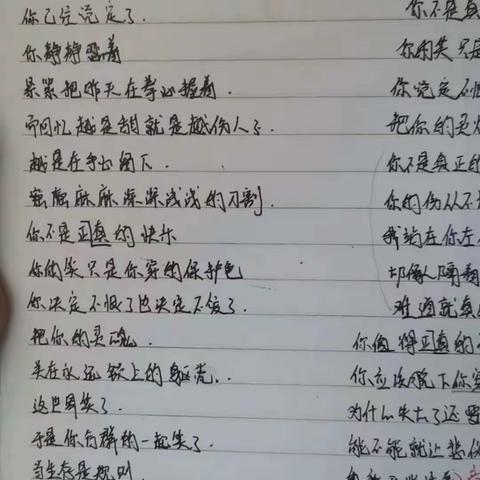 你已经决定了.
你静静忍着
紧紧把昨天在拳心握着.
而回忆越是甜就是越伤人了.
越是在手心留下.
密密麻麻深深浅浅的刀割.
你不是正真的快乐
你的笑只是你穿的保护色
你决定不恨了也决定不爱了.
把你的灵魂.
关在永远锁上的躯壳..
这世界笑了.
于是你合群的一起笑了
当生存是规则
你不是真
你的笑只是
你决定不恨
把你的灵
你不是真正的
你的伤从不
我站在你左
却像隔着
难道就真
你值得正真的
你应该脱下你穿
为什么失去了还要
能不能就让悲伤